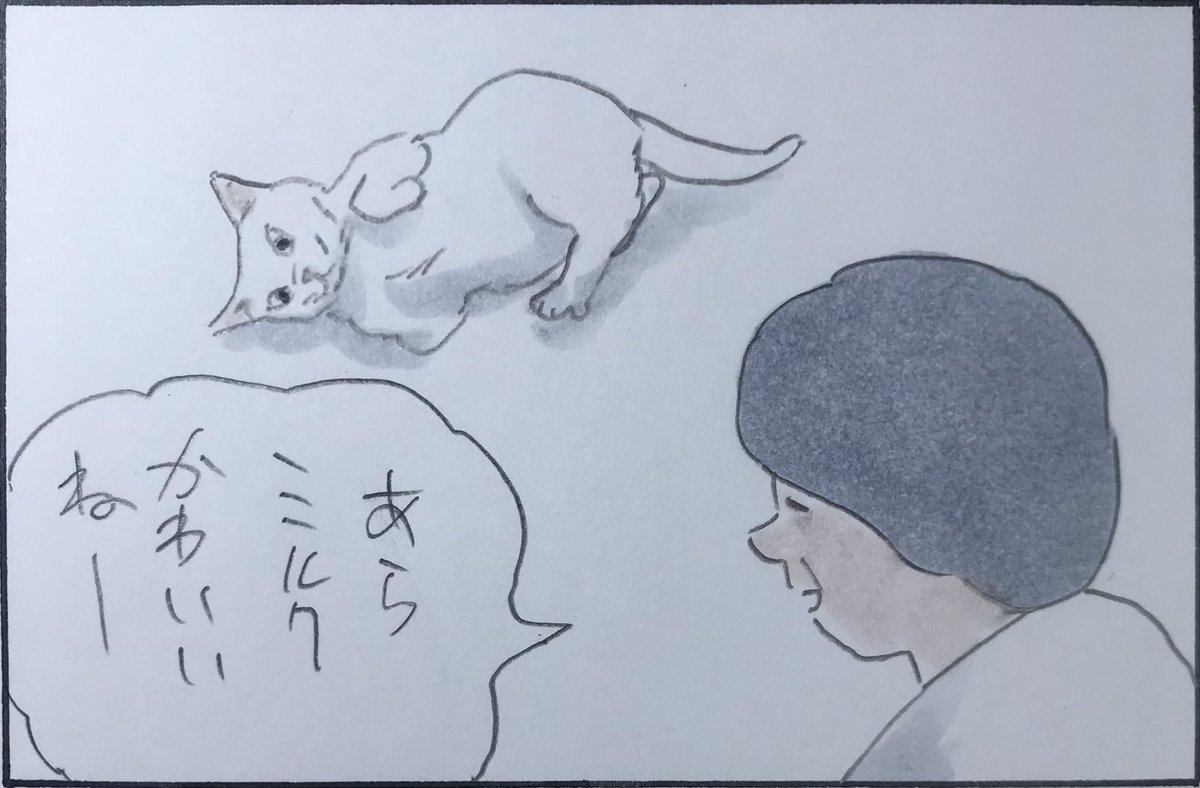 あら
ミルク
かわいい
ねー